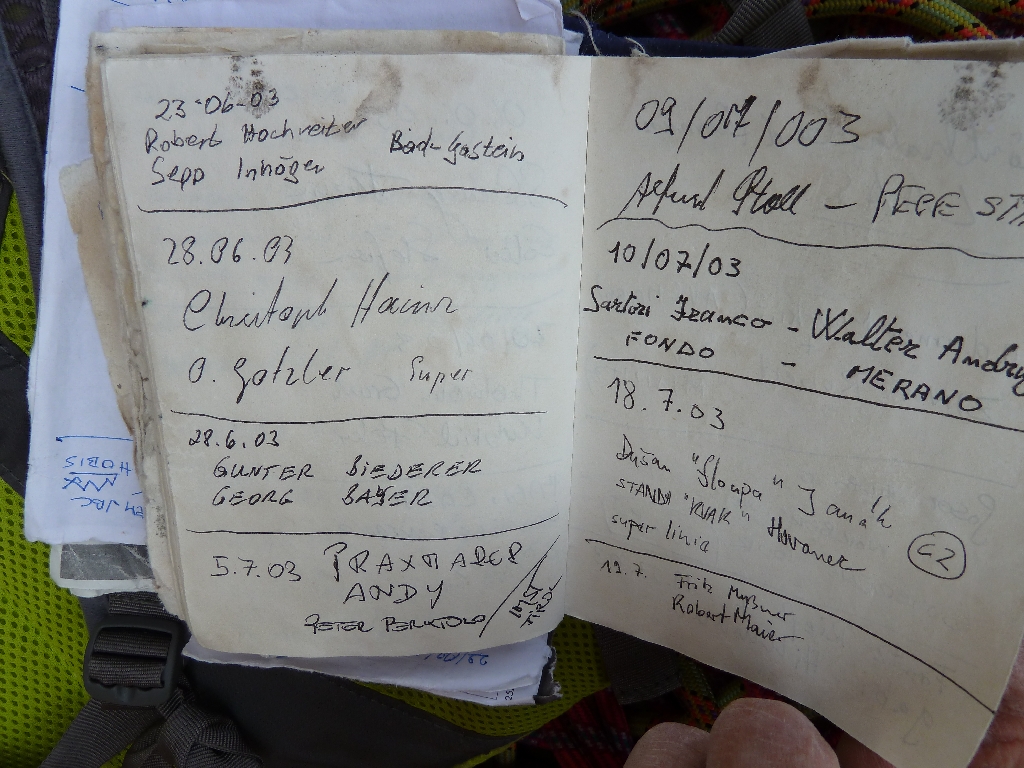 23-06-03
Robert Hochreiter Bad-Gastein
Sepp Inhöger
28.06.03
Christoph Hainz
O. Gotzler Super
28.6.03
GUNTER BIEDERER
GEORG BAYER
5.7.03 PRAXMARER
ANDY
PETER
09/07/003
10/07/03
Sartori Franco - Walter
FONDO - MERANO
18.7.03
Dušan "Sloupa" Janák
STANDA "KVAK" Hovanec
super linia
CZ
19.7. Fritz
Robert Maier
HOBIS